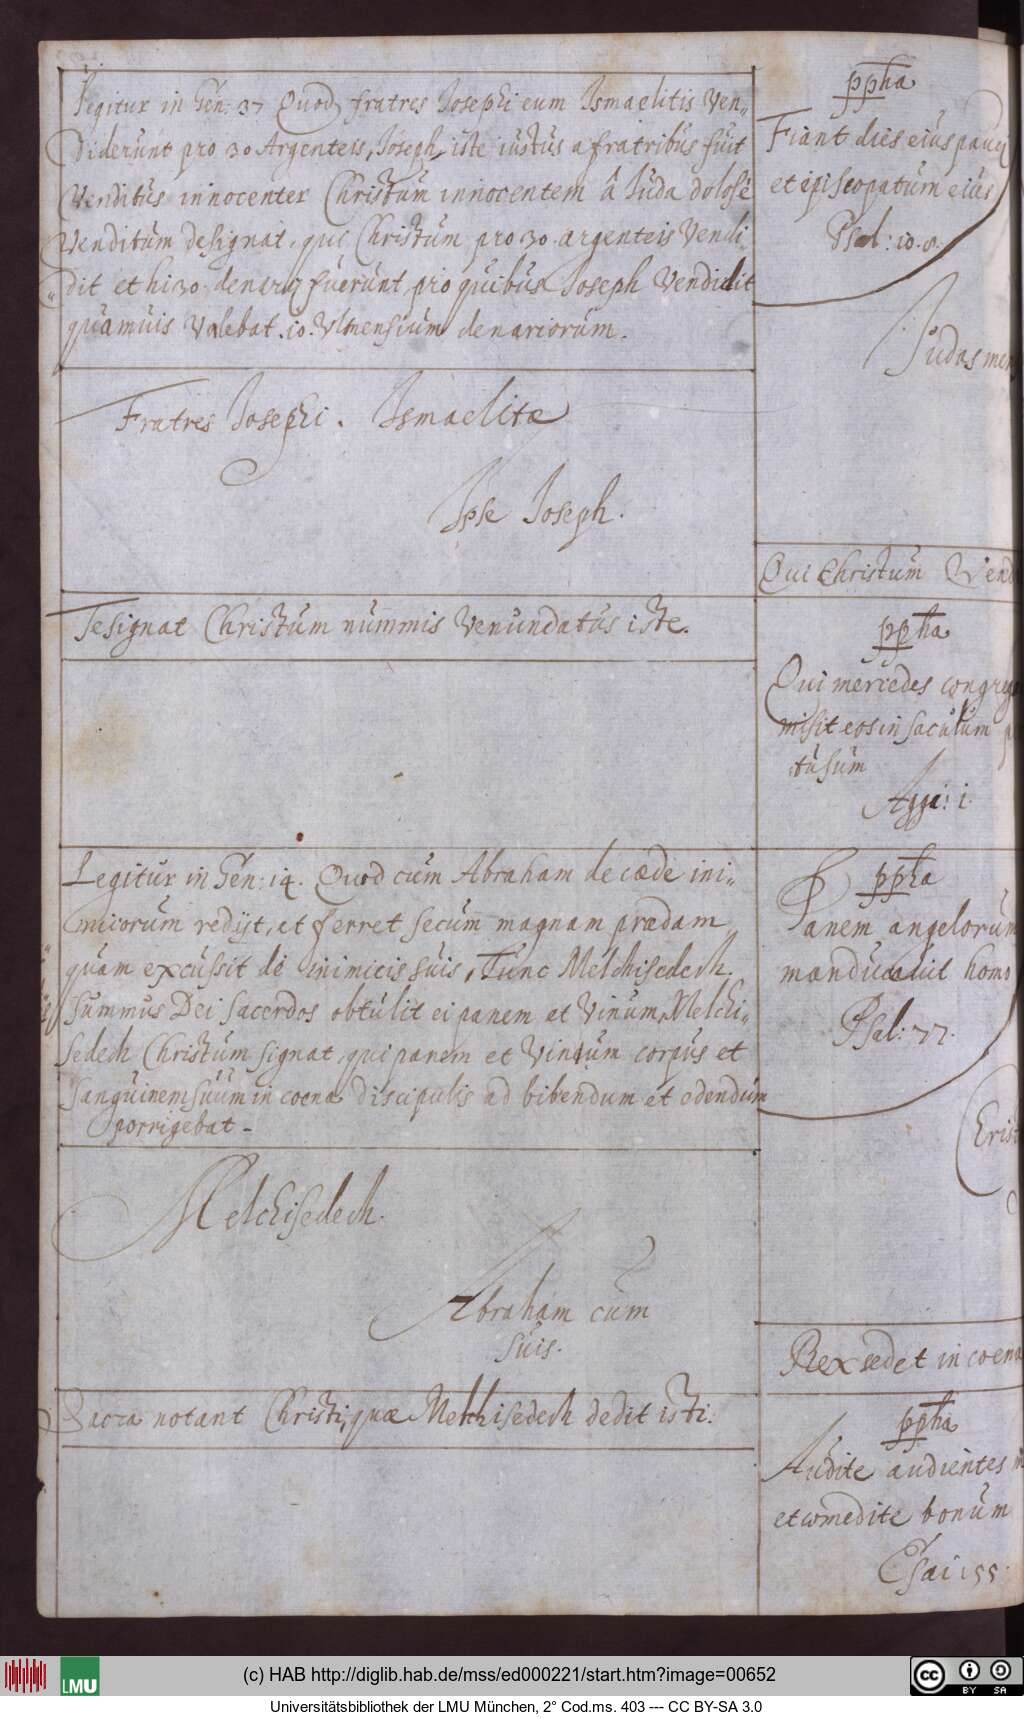 Legitur in Gen: 37 Quod fratres Josephi eum Ismaelitis Ven„
diderunt pro 30 Argenteis, Joseph iste iustus a fratribus fuit
Venditus innocenter Christum innocentem â Juda dolose
Venditum designat, qui Christum pro 30. argenteis Vendi„
„dit et hi 30. denarij fuerunt pro quibus Joseph Vendidit
quamuis Valebat. 10. Vlmensium denariorum.
Fratres Josephi. Ismaelitæ
Ipse Joseph.
Designat Christum nummis Venundatus iste.
Legitur in Gen: 14. Quod cum Abraham de cæde ini„
micorum redijt, et ferret secum magnam prædam
quam excussit de inimicis suis, Tunc Melchisedech.
summus Dei sacerdos obtulit ei panem et Vinum, Melchi„
sedech Christum signat, qui panem et Vinum corpus et
sanguinem suum in coena discipulis ad bibendum et edendum
porrigebat -
Melchisedech.
Abraham cum
suis.
Sacra notant Christi, quæ Melchisedech dedit isti.
ppha
Fiant dies eius pauci
et episcopatum eius
Psal: 10.8.
Judas
Qui Christum Vend
ppha
Qui mercedes congrega
misit eos in saculum
tusum
Agge: 1.
ppha
Panem angelorum
manducauit homo
Psal: 77.
Rex sedet in coena
ppha
Audite audientes
et comedite bonum
Esai 55.
(c) HAB http://diglib.hab.de/mss/ed000221/start.htm?image=00652
LMU
cc BY SA
Universitätsbibliothek der LMU München, 2° Cod.ms. 403 --- CC BY-SA 3.0